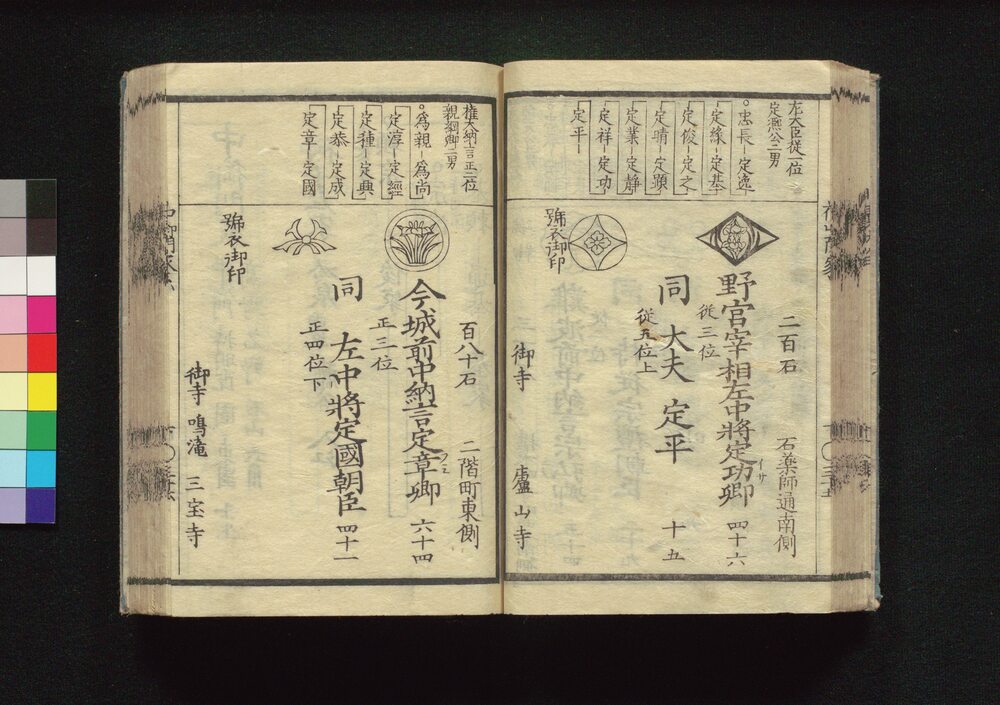 左大臣従一位
定熙公二男
忠長－定逸
定縁－定基
定俊－定之
定晴－定顕
定業－定静
定祥－定功
定平
二百石
石薬師通南側
野宮宰相左中將定功卿
イサ
四十六
従三位
同 大夫 定平
十五
従五位上
號衣御印
御寺
盧山寺
権大納言正二位
親綱卿二男
為親－為尚
定淳－定經
定種－定興
定恭－定成
定章－定國
百八十石
二階町東側
今城前中納言定章卿
フミ
六十四
正三位
同 左中將定國朝臣
四十一
正四位下
號衣御印
御寺 鳴滝 三宝寺